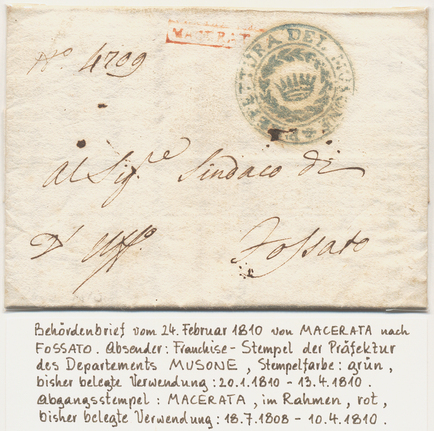 MACERATA
PREFETTURA DEL MUSONE
N.º 4709
Al Sig.e Sindaco di
D' Uff.o Fossato
Behördenbrief vom 24. Februar 1810 von MACERATA nach
FOSSATO. Absender: Franchise-Stempel der Präfektur
des Departements MUSONE, Stempelfarbe: grün,
bisher belegte Verwendung: 20.1.1810 - 13.4.1810.
Abgangsstempel: MACERATA, im Rahmen, rot,
bisher belegte Verwendung: 18.7.1808 - 10.4.1810.